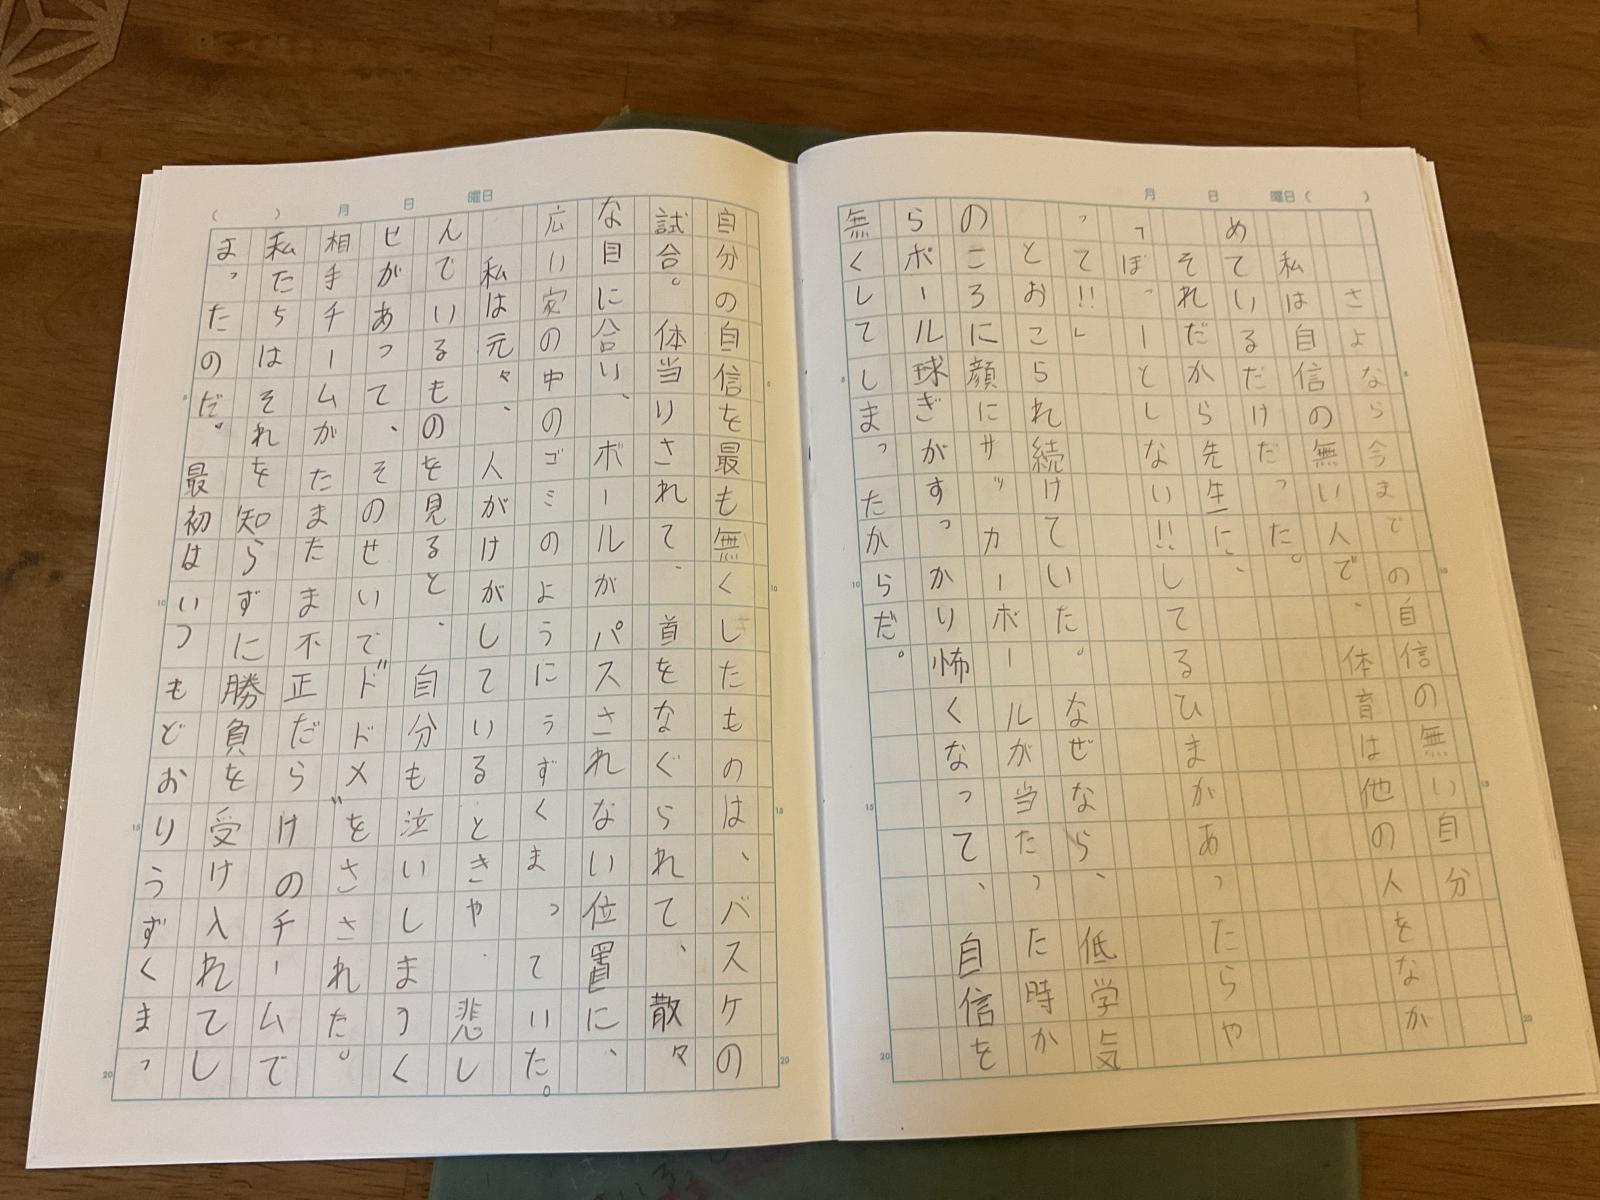 月 日 曜日 ( )
さよなら今までの自信の無い自分
私は自信の無い人で、体育は他の人をなが
めているだけだった。
それだから先生に、
「ぼっーとしない!!してるひまがあったらや
って!!」
とおこられ続けていた。なぜなら、低学気
のころに顔にサッカーボールが当たった時か
らボール球ぎがすっかり怖くなって、自信を
無くしてしまったからだ。
( ) 月 日 曜日
自分の自信を最も無くしたものは、バスケの
試合。体当りされて、首をなぐられて、散々
な目に合い、ボールがパスされない位置に、
広い家の中のゴミのようにうずくまっていた。
私は元々、人がけがしているときや、悲し
んでいるものを見ると、自分も泣いしまうく
せがあって、そのせいで"ドドメ"をさされた。
相手チームがたまたま不正だらけのチームで
私たちはそれを知らずに勝負を受け入れてし
まったのだ。最初はいつもどおりうずくまっ